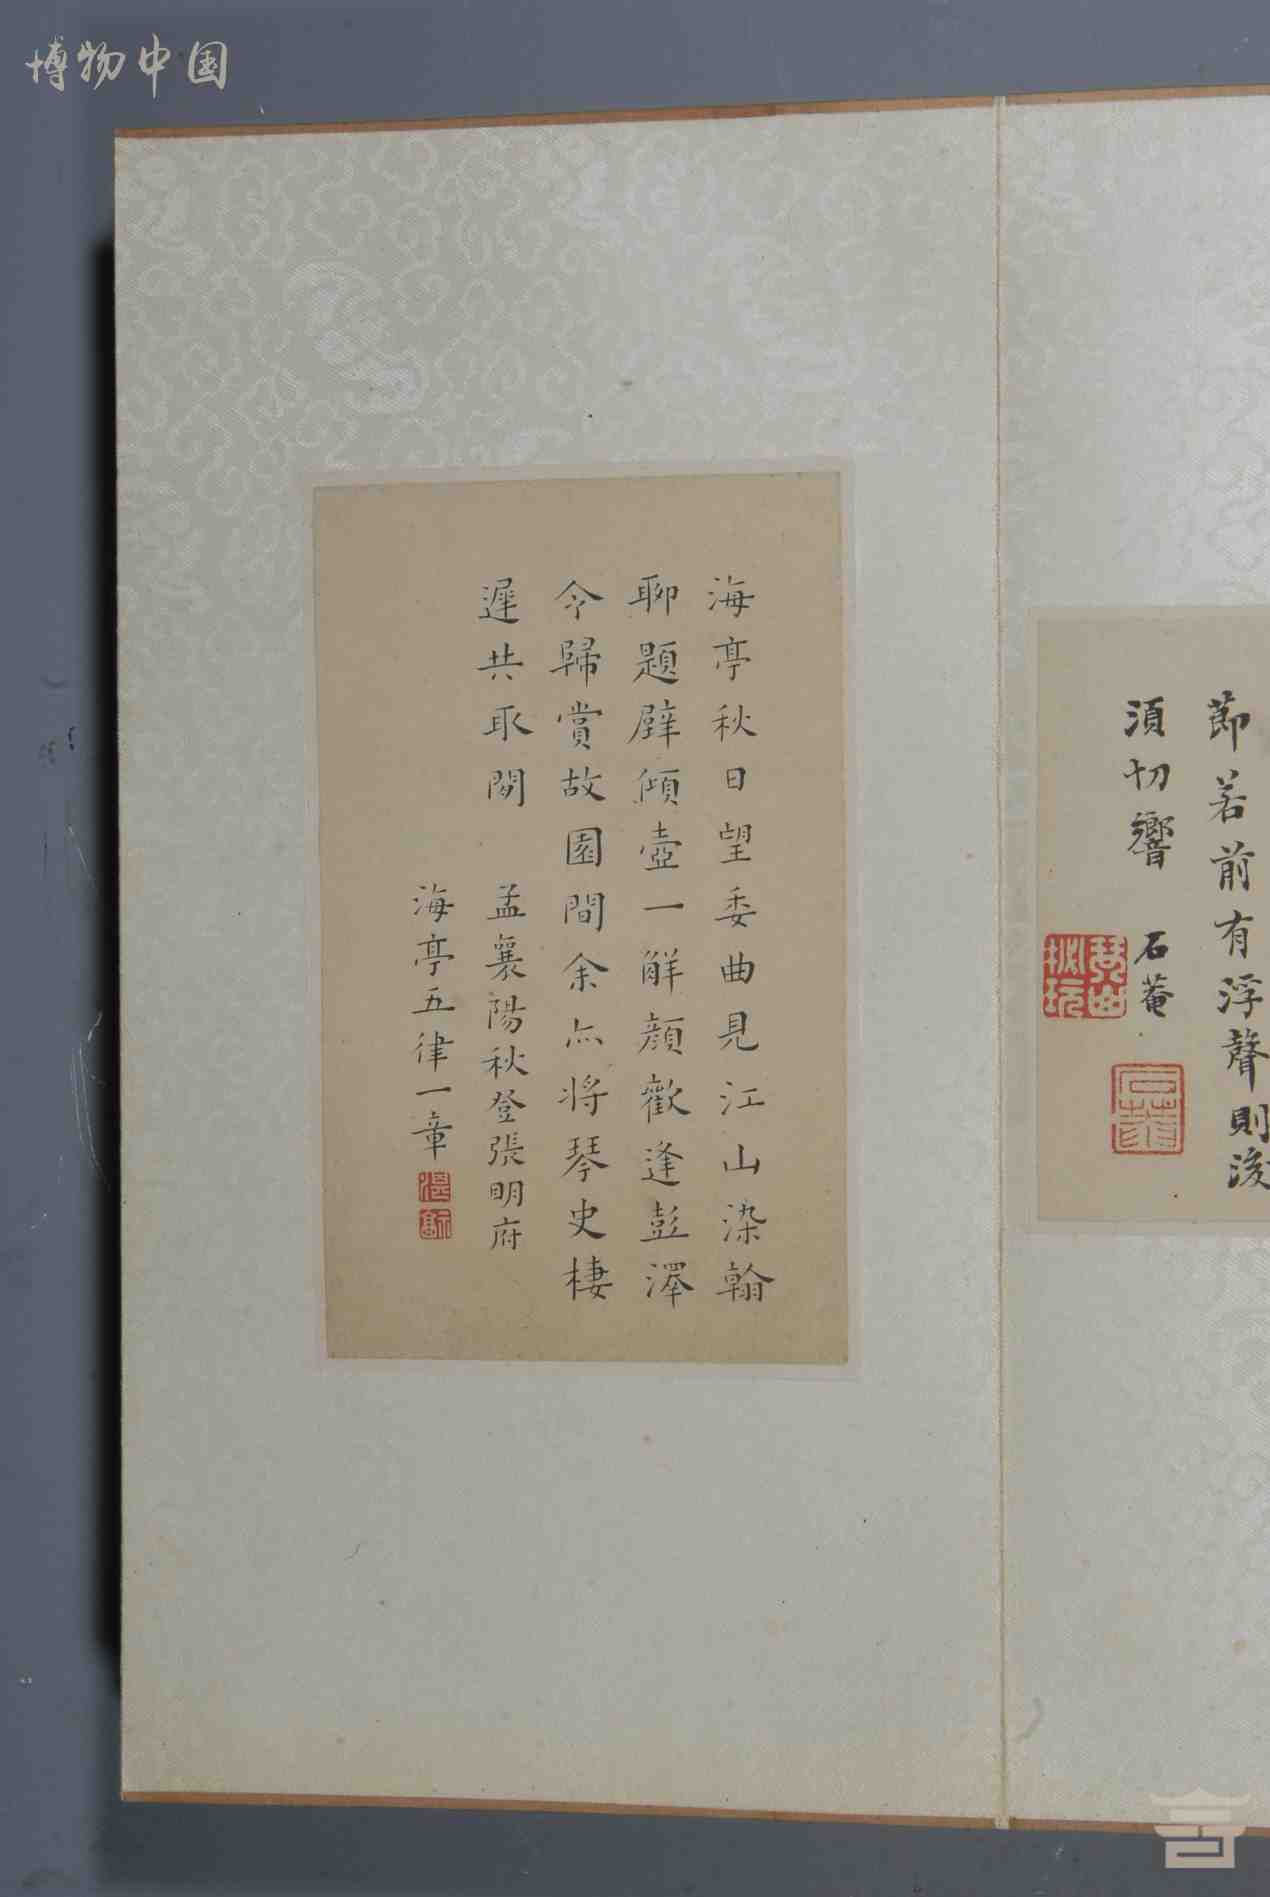 博物中国
節若前有浮聲則後
須切響 石菴
石菴
海亭秋日望委曲見江山染翰
聊題壁傾壺一解顏歡逢彭澤
令歸賞故園間余亦將琴史棲
遲共取閒 孟襄陽秋登張明府
海亭五律一章